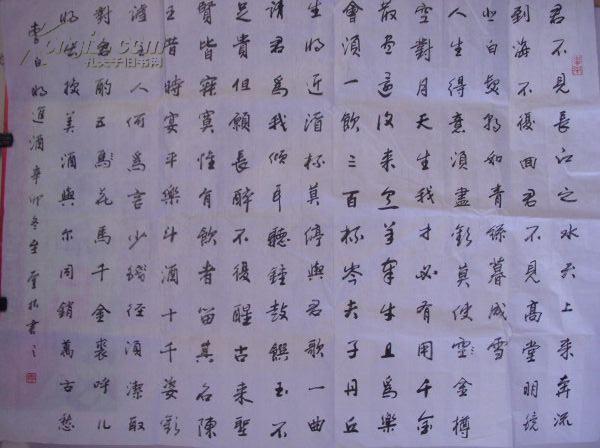 君不見長江之水天上來奔流
到海不復回君不見高堂明鏡
悲白髮朝如青絲暮成雪
人生得意須盡歡莫使金樽
空對月天生我才必有用千金
散盡還復來烹羊宰牛且為樂
會須一飲三百杯岑夫子丹丘
生將近酒杯莫停與君歌一曲
請君為我傾耳聽鍾鼓饌玉不
足貴但願長醉不復醒古來聖
賢皆寂寞惟有飲者留其名陳
王昔時宴平樂斗酒十千恣歡
謔主人何為言少錢徑須取
對君酌五馬花馬千金裘呼兒
將出換美酒與尔同銷萬古愁
李白將進酒辛卯冬至書之
孔夫子旧书网